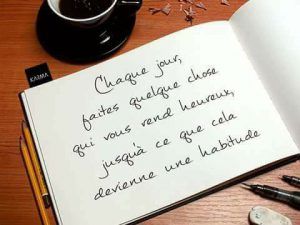 KARMA
Chaque jour,
faites quelque chose
qui vous rend heureux,
jusqu'à ce que cela
devienne une habitude